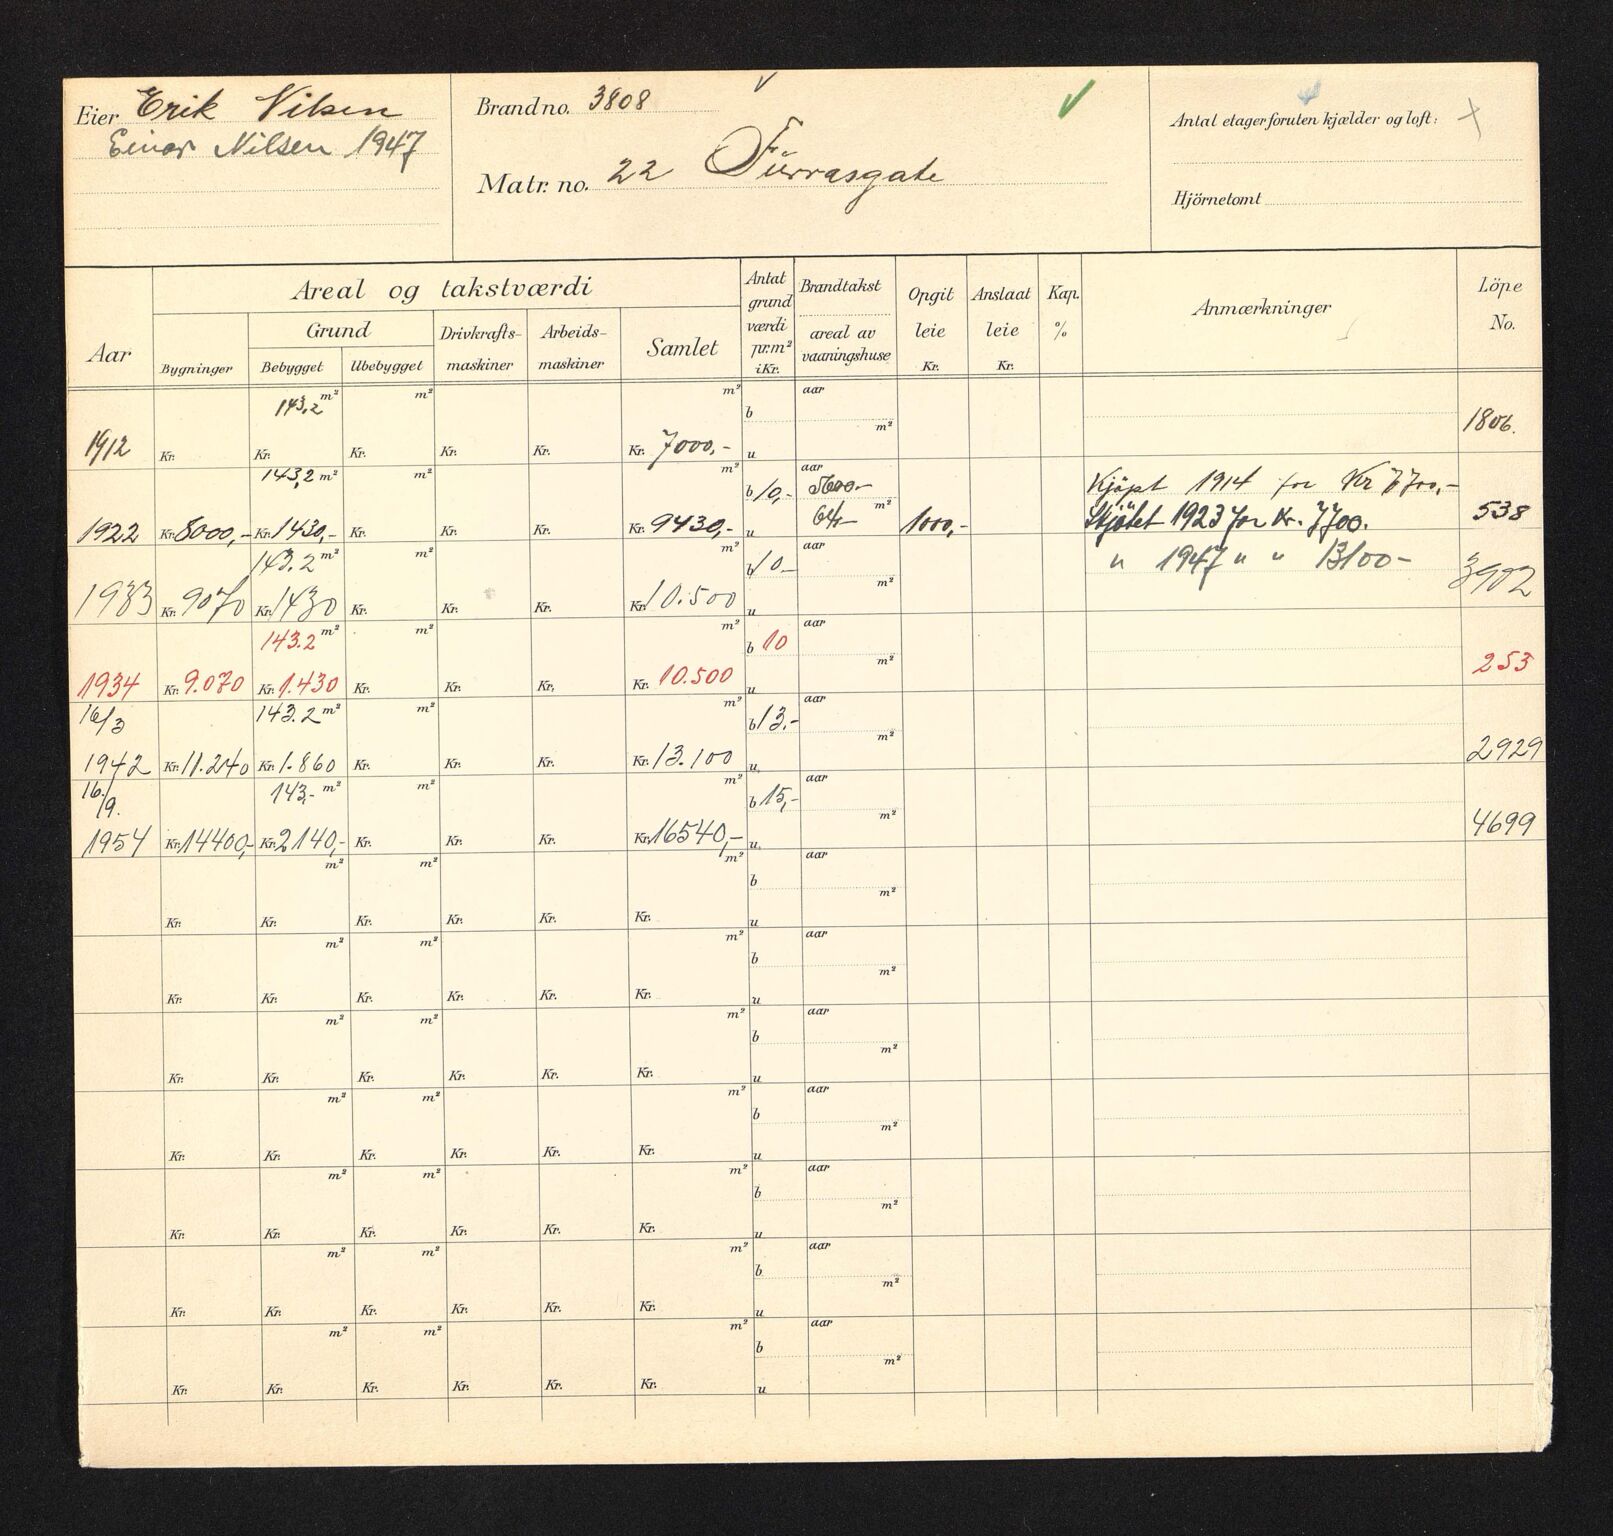 Eier Erik Nilsen
Einar Nilsen 1947
Brand no. 3808
Matr. no. 22 Fürrasgate
Antal etager foruten kjælder og loft:
Hjörnetomt
Aar
Areal og takstværdi
Bygninger
Grund
Bebygget
Ubebygget
Drivkrafts-
maskiner
Arbeids-
maskiner
Samlet
Antat
grund
værdi
pr.m²
i Kr.
Brandtakst
areal av
vaaningshuse
Opgit
leie
Kr.
Anslaat
leie
Kr.
Kap.
%
Anmærkninger
Löpe
No.
143,2 m² m² m² b aar m²
1912 Kr. Kr. Kr. Kr. Kr. Kr. 7000,- u 1806.
143,2 m² m² m² b 10,- aar 5600.- Kjöpt 1914 for Kr 7700,-
1922 Kr. 8000,- Kr. 1430,- Kr. Kr. Kr. Kr. 9430,- u 64 m² 1000,- Skjötet 1923 for Kr. 7700. 538
143.2 m² m² m² b 10- aar m² " 1947 " " 13100-
1933 Kr. 9070 Kr. 1430 Kr. Kr. Kr. Kr. 10.500 u 3902
143.2 m² m² m² b 10 aar m²
1934 Kr. 9.070 Kr. 1.430 Kr. Kr. Kr. Kr. 10.500 u 253
16/3 143.2 m² m² m² b 13.- aar m²
1942 Kr. 11.240 Kr. 1.860 Kr. Kr. Kr. Kr. 13.100 u 2929
16./9. 143,- m² m² m² b 15,- aar m²
1954 Kr. 14400,- Kr. 2140,- Kr. Kr. Kr. Kr. 16540,- u 4699
m² m² m² b aar m²
Kr. Kr. Kr. Kr. Kr. Kr. u
m² m² m² b aar m²
Kr. Kr. Kr. Kr. Kr. Kr. u
m² m² m² b aar m²
Kr. Kr. Kr. Kr. Kr. Kr. u
m² m² m² b aar m²
Kr. Kr. Kr. Kr. Kr. Kr. u
m² m² m² b aar m²
Kr. Kr. Kr. Kr. Kr. Kr. u
m² m² m² b aar m²
Kr. Kr. Kr. Kr. Kr. Kr. u
m² m² m² b aar m²
Kr. Kr. Kr. Kr. Kr. Kr. u